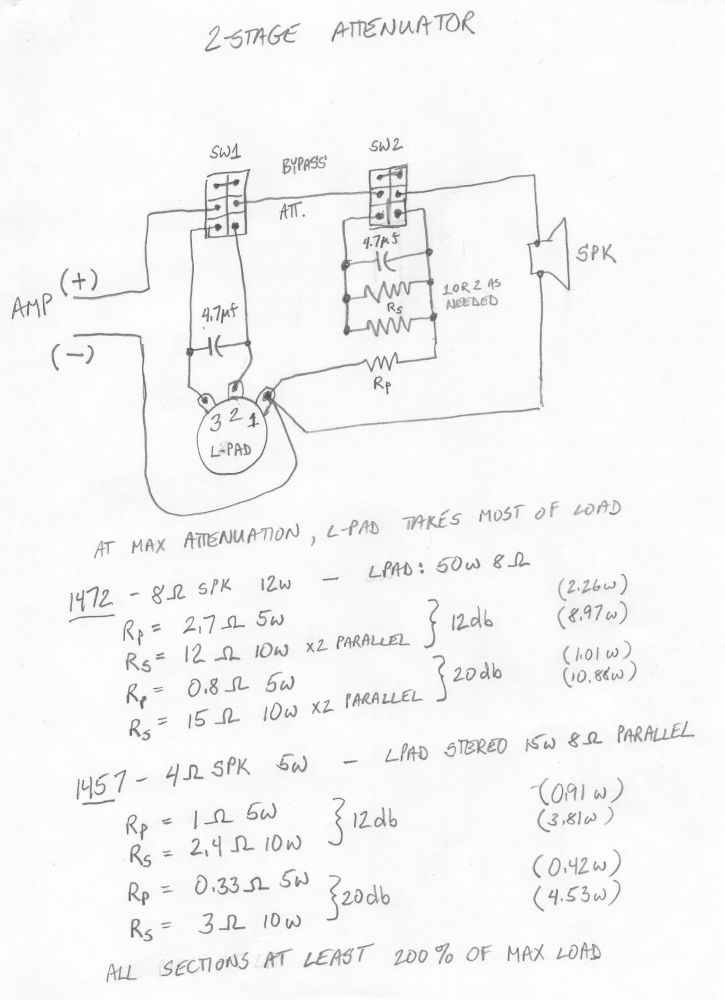 2-STAGE ATTENUATOR
SW1
BYPASS
SW2
ATT.
4.7µf
SPK
(+)
AMP
1 OR 2 AS
NEEDED
RS
4.7µf
(-)
RP
3 2 1
L-PAD
AT MAX ATTENUATION, L-PAD TAKES MOST OF LOAD
1472 - 8Ω SPK 12W - LPAD: 50W 8Ω
RP = 2.7Ω 5W } 12db (2.26W)
RS = 12Ω 10W X2 PARALLEL (8.97W)
RP = 0.8Ω 5W } 20db (1.01W)
RS = 15Ω 10W X2 PARALLEL (10.88W)
1457 - 4Ω SPK 5W - LPAD STEREO 15W 8Ω PARALLEL
RP = 1Ω 5W } 12db (0.91W)
RS = 2.4Ω 10W (3.81W)
RP = 0.33Ω 5W } 20db (0.42W)
RS = 3Ω 10W (4.53W)
ALL SECTIONS AT LEAST 200% OF MAX LOAD